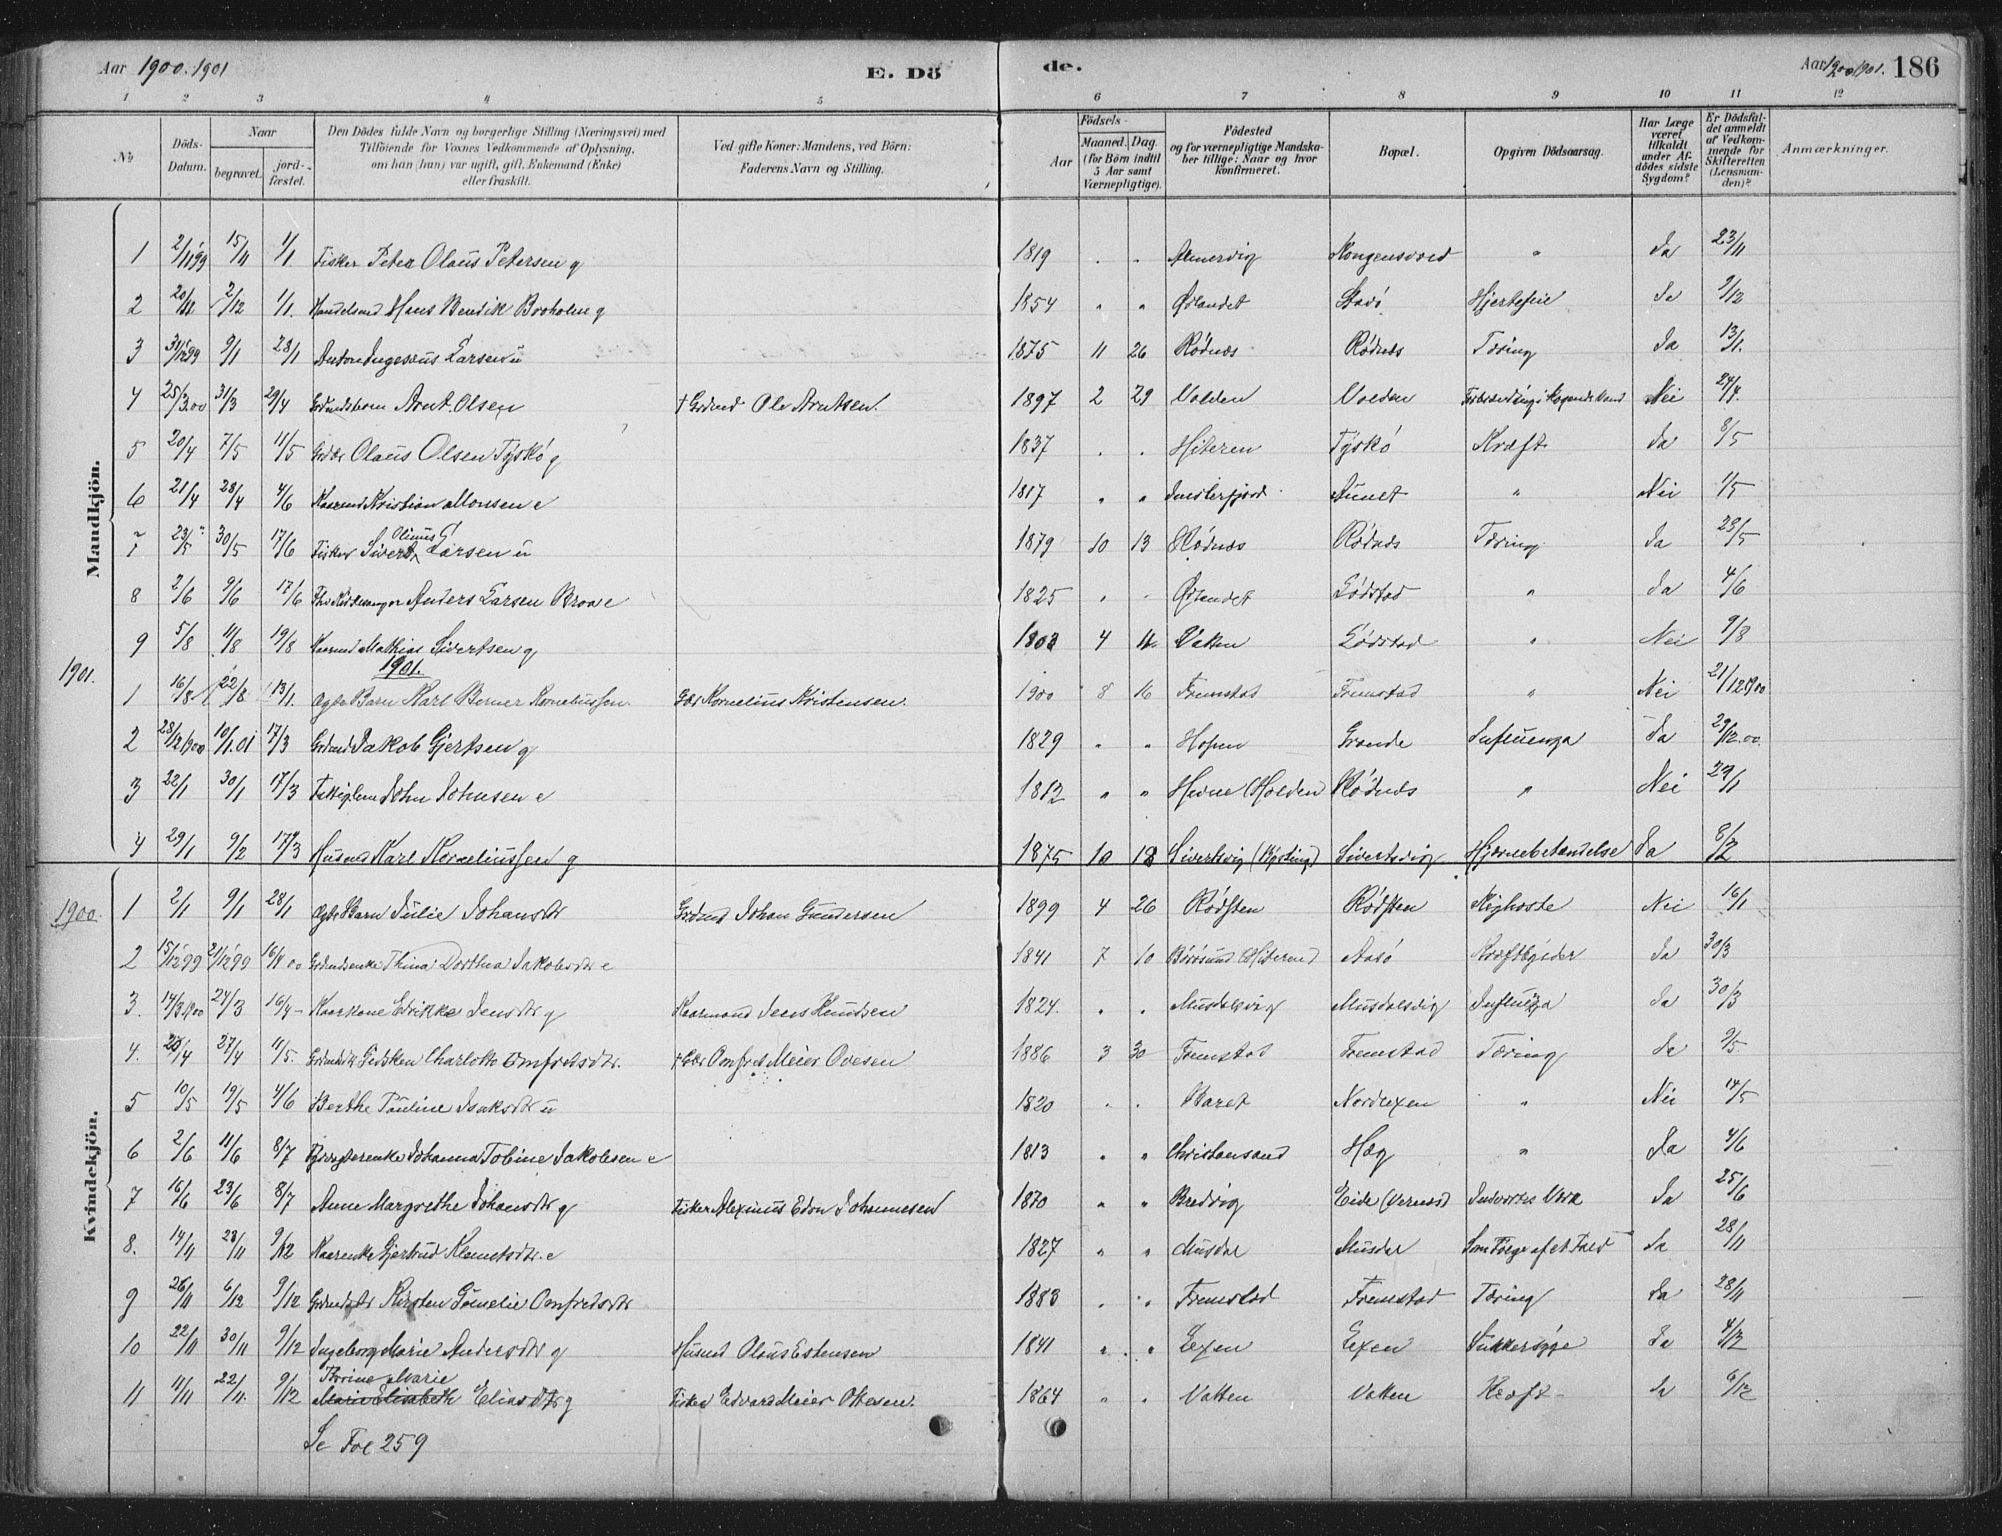 Aar 1900.1901
E. Dö
de.
Aar 1900 1901. 186
1 2 3 4 5 6 7 8 9 10 11 12
No
Döds-Datum.
Naar
begravet.
jord-fæstet.
Den Dödes fulde Navn og borgerlige Stilling (Næringsvei) med
Tilföiende for Voxnes Vedkommende af Oplysning,
om han (hun) var ugift, gift, Enkemand (Enke)
eller fraskilt.
Ved gifte Koner: Mandens, ved Börn:
Faderens Navn og Stilling.
Aar
Födsels-
Maaned. Dag.
(for Börn indtil
5 Aar samt
Værnepligtige).
Födested
og for værnepligtige Mandska-
ber tillige: Naar og hvor
konfirmeret.
Bopæl.
Opgiven Dödsaarsag.
Har Læge
været
tilkaldt
under Af-
dödes sidste
Sygdom?
Er Dödsfal-
det anmeldt
af Vedkom-
mende for
Skifteretten
(Lensman-
den)?
Anmærkninger.
Mandkjön.
1 2/11 99 15/11 1/1 Fisker Peter Olaus Petersen g 1819 " " Kongensvold " Ja 23/11
2 20/11 2/12 1/1 Hans Bendik Borholm g 1854 " " Ørlandet Hjertefeil Ja 9/12
3 31/12 99 9/1 28/1 Larsen u 1875 11 26 Rødnæs Rødnæs Tæring Ja 13/1.
4 25/3.00 31/3 29/4 Arnt Olsen † Gbrmd Ole Arntsen. 1897 2 29 Volden Volden Nei 24/4.
5 20/4 7/5 11/5 Olaus Olsen Tyskø g 1837 " " Hiteren Tyskø Kræft Ja 8/5
6 21/4 28/4 4/6 Kaarmd Kristian Monsen e 1817 " " Aunet " Nei 1/5
7 23/5 30/5 17/6 Fisker Sivert Olinus Larsen u 1879 10 13 Rødnæs Rødnæs Tæring Ja 29/5
8 2/6 9/6 17/6 Anders Larsen Broa e 1825 " " Ørlandet Lødstad " Ja 4/6
9 5/8 11/8 19/8 Kaarmd Mathias Sivertsen g 4 Vatten Lødstad " Nei 9/8
1901.
1901.
1 16/8 22/8 13/1. Ægte Barn Karl Berner Korneliussen. Gbr Kornelius Kristensen. 1900 8 16 Fremstad Fremstad " Nei 21/12 1900
2 28/12 1900 10/1.01 17/3 Gbrmd Jakob Gjertsen g 1829 " " Hopen Grande Influenza Ja 29/12.00.
3 22/1 30/1 17/3 Fattiglem John Johnsen e 1812 " " Hevne (Holden) Rødnæs " Nei 29/1
4 29/1 9/2 17/3 Husmd Karl Korneliussen g 1875 10 18 Sivertsvig Sivertsvig Hjernebetændelse Ja 8/2
Kvindekjön.
1900.
1 2/1 9/1 28/1 Ægte Barn Julie Johansdtr Gbrmd Johan Gundersen 1899 4 26 Rødsten Rødsten Kighoste Nei 16/1
2 15/12 99 21/12 99 16/4 00 Gbrmdsenke Thina Dorthea Jakobsdtr e 1841 7 10 Børøsund (Hiteren) Aasø Ja 30/3
3. 14/3 1900 24/3 16/4 - Kaarkone Erikke Jensdtr g Kaarmand Jens Knudsen 1824. " " Musdalsvig Musdalsvig Influenza Ja 30/3
4. 20/4 27/4 11/5. Gidsken Charlotte Omfredsdtr. † Gbr Omfred Meier Ovesen 1886 3 30 Fremstad Fremstad Tæring Ja 9/5.
5 10/5 19/5 4/6 Berthe Pauline Isaksdtr u 1820 " " Baret Nordlexen " Nei 14/5
6 2/6 11/6 8/7 Johanna Tobine Jakobsen e 1813 " " Christiansand Hog " Ja 4/6
7 16/6 23/6 8/7 Anne Margrethe Johansdtr g Fisker Aleximus Edon Johannesen 1870 " " Bredvig Eide Indvortes Værk Ja 25/6
8. 14/11 23/11 9/12 Kaarenke Gjertrud Klemetsdtr. e 1827 " " Musdal Musdal Som Følge af et Fald Ja 28/11
9 26/11 6/12 9/12 Kirsten Omfredsdtr 1883 " " Fremstad Fremstad Tæring Ja 28/11
10 22/11 30/11 9/12 Ingeborg Marie Andersdtr g Husmd Olaus Estensen 1841 " " Lexen Lexen Sukkersyge Ja 4/12
Thrine Marie
11 11/11 22/11. 9/12 Marie Elisabeth Eliasdtr g Fisker Edvard Meier Ottesen. 1864 " " Vatten Vatten Kræft Ja 6/12
Se Fol 259